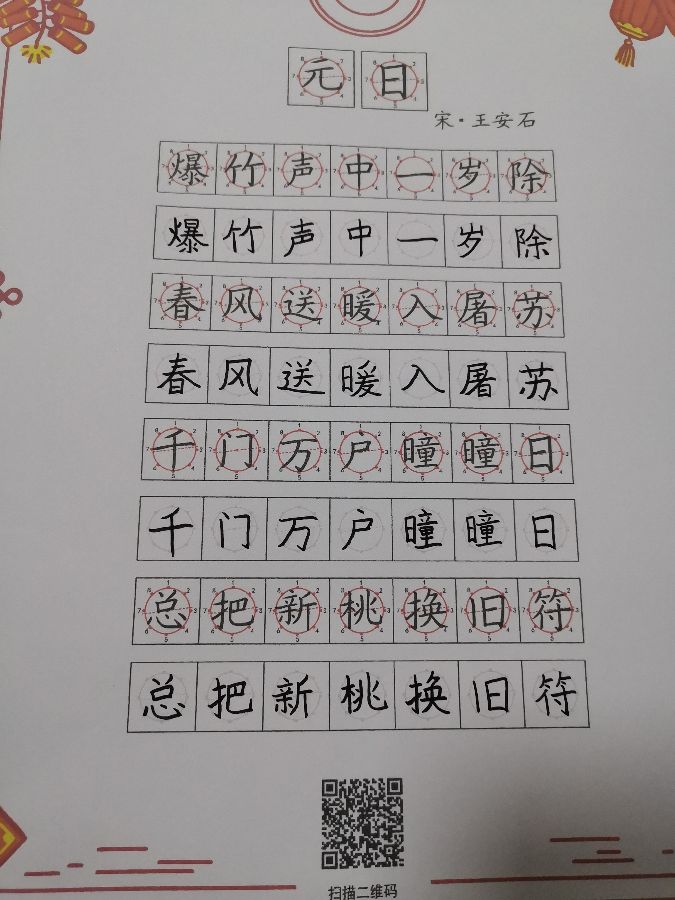 元日
宋·王安石
爆竹声中一岁除
爆竹声中一岁除
春风送暖入屠苏
春风送暖入屠苏
千门万户曈曈日
千门万户瞳瞳日
总把新桃换旧符
总把新桃换旧符
扫描二维码